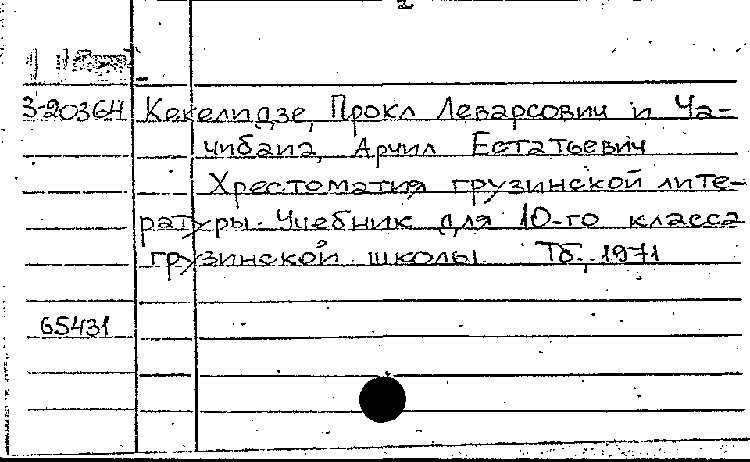 3-20364 Кекелидзе, Прокл Леварсович и Ча-
чибаиа, Арчил Естатьевич
Хрестоматия грузинской лите-
ратуры. Учебник для 10-го класса
грузинской школы. Тб., 1971
65431